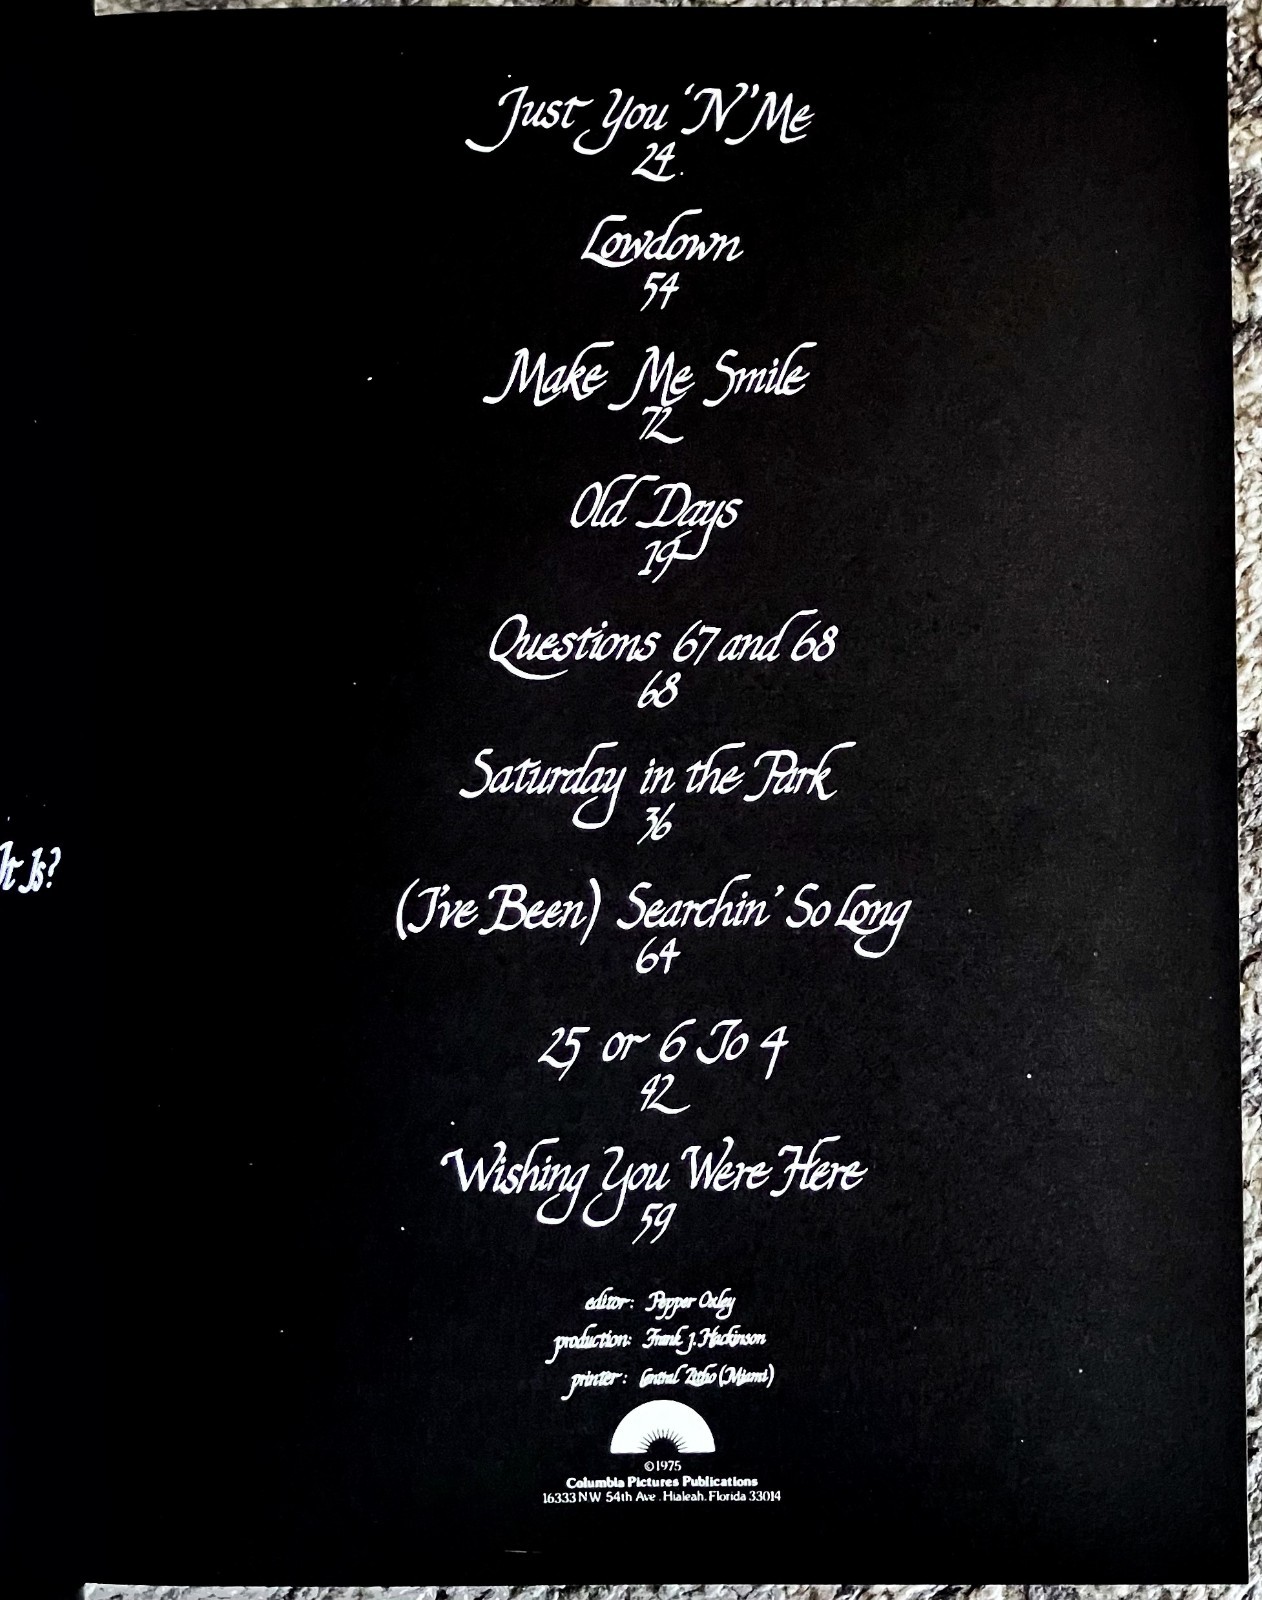 Just You 'N' Me
24
Lowdown
54
Make Me Smile
72
Old Days
19
Questions 67 and 68
68
Saturday in the Park
36
It Is?
(I've Been) Searchin' So Long
64
25 or 6 To 4
42
Wishing You Were Here
59
editor: Pepper Oxley
production: Frank J. Hackinson
printer: Central Litho (Miami)
©1975
Columbia Pictures Publications
16333 NW 54th Ave. Hialeah, Florida 33014